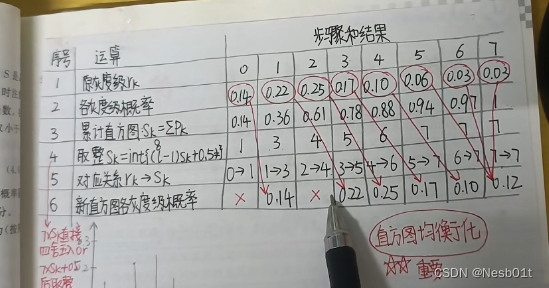 步骤和结果
序号 运算 0 1 2 3 4 5 6 7
1 原灰度级rk
2 各灰度级概率 0.14 0.22 0.25 0.17 0.10 0.06 0.03 0.03
3 累计直方图Sk=ΣPk 0.14 0.36 0.61 0.78 0.88 0.94 0.97 1
4 取整Sk=int[(L-1)Sk+0.5] 1 3 4 5 6 7 7 7
5 对应关系rk→Sk 0→1 1→3 2→4 3→5 4→6 5→7 6→7 7→7
6 新直方图各灰度级概率 × 0.14 × 0.22 0.25 0.17 0.10 0.12
7×Sk直接
四舍五入or
7×Sk+0.5
后取整
直方图均衡化
☆☆ 重要
CSDN @Nesb01t